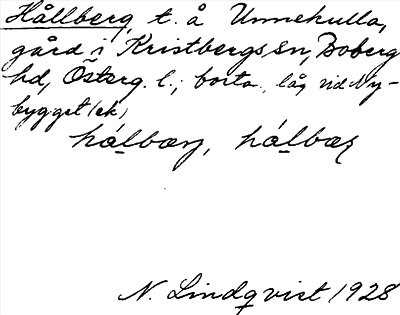 Hållberg, t. å Unnekulla,
gård i Kristbergs sn, Boberg
hd, Österg. l.; borta, låg vid Ny-
bygget (ek)
hålbærj, hålbær
N. Lindqvist 1928